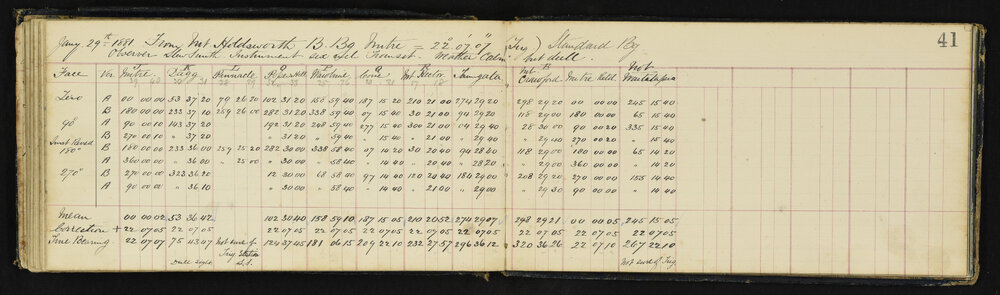 Jany 29th 1881 From Mt Holdsworth B. Bg Mitre = 22° 07' 07" (Trig) Standard Bg 41
Observer Instrument six inch Weather Calm but dull.
Face Ver Mitre Pinnacle Cone Mt Rector Mt Crawford Mitre Reld Mt
Zero A 00 00 00 53 37 20 79 26 20 102 31 20 158 59 40 187 15 20 210 21 00 274 29 20 298 29 20 00 00 00 245 15 40
B 180 00 00 233 37 10 259 26 00 282 31 20 338 59 40 07 15 40 30 21 00 94 29 20 118 29 00 180 00 00 65 15 40
90 A 90 00 10 143 37 20 192 31 20 248 59 40 277 15 40 300 21 00 04 29 40 28 30 00 90 00 20 335 15 40
B 270 00 10 " 37 20 " 31 20 " 59 40 " 15 40 " 21 00 " 29 40 " 29 40 270 00 20 " 15 40
Inst Revsed
180° B 180 00 00 233 36 00 259 25 20 282 30 00 338 58 40 07 14 20 30 20 40 94 28 40 118 29 00 180 00 00 65 14 20
A 360 00 00 " 36 00 " 25 00 " 30 00 " 58 40 " 14 40 " 20 40 " 28 20 " 29 00 360 00 00 " 14 20
270° B 270 00 00 323 36 20 12 30 00 68 58 40 97 14 40 120 20 40 184 29 00 208 29 20 270 00 00 155 14 40
A " 00 00 " 36 10 " 30 00 " 58 40 " 14 40 " 21 00 " 29 00 " 29 30 90 00 00 " 14 40
Mean 00 00 02 53 36 42 102 30 40 158 59 10 187 15 05 210 20 52 274 29 07 298 29 21 00 00 05 245 15 05
Correction + 22 07 05 22 07 05 22 07 05 22 07 05 22 07 05 22 07 05 22 07 05 22 07 05 22 07 05 22 07 05
True Bearing 22 07 07 75 43 47 Not sure of 124 37 45 181 06 15 209 22 10 232 27 57 296 36 12 320 36 26 22 07 10 267 22 10
Trig Station
Dull sight Not sure of Trig